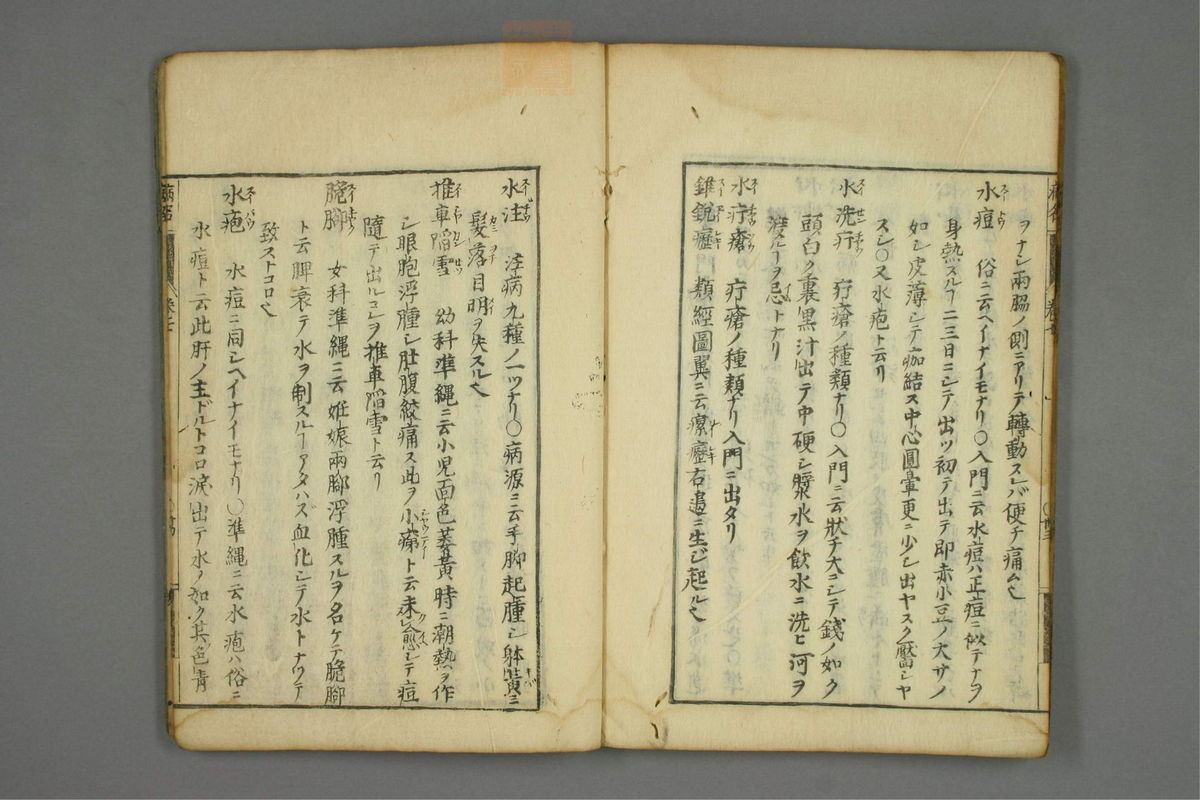 ヲナシ兩腸ノ側ニアリテ轉動スレバ便チ痛ム也
水痘 俗ニ云ヘイナイモナリ〇入門ニ云水痘ハ正痘ニ似テナヲ
身熱スルヿ二三日ニシテ出ツ初テ出テ即赤小豆ノ大サノ
如シ皮薄シテ痂結ス中心圓暈更ニ少シ出ヤスク靨シヤ
スシ〇又水疱ト云リ
水洗疔 疔瘡ノ種類ナリ〇入門ニ云狀チ大ニシテ錢ノ如ク
頭白ク裏黒汁出テ中硬シ漿水ヲ飲水ニ洗ヒ河ヲ
渡ルヿヲ忌トナリ
水疔瘡 疔瘡ノ種類ナリ入門ニ出タリ
錐銳癧 類經圖翼ニ云瘰癧右邉ニ生ジ起ル也
水注 疰病九種ノ一ツナリ〇病源ニ云手脚起腫シ躰黄ニ
髮落目明ヲ失スル也
推車陷雪 幼科準縄ニ云小児面色萎黄時ニ潮熱ヲ作
シ眼胞浮腫シ肚腹絞痛ス此ヲ小 ト云未愈シテ痘
隨テ出ルコレヲ推車陷雪ト云リ
脆脚 女科準縄ニ云妊娠兩脚浮腫スルヲ名ケテ脆脚
ト云脾衰テ水ヲ制スルヿアタハズ血化シテ水トナツテ
致ストコロ也
水疱 水痘ニ同シヘイナイモナリ〇準縄ニ云水疱ハ俗ニ
水痘ト云此肝ノ主ドルトコロ淚出テ水ノ如ク其色青